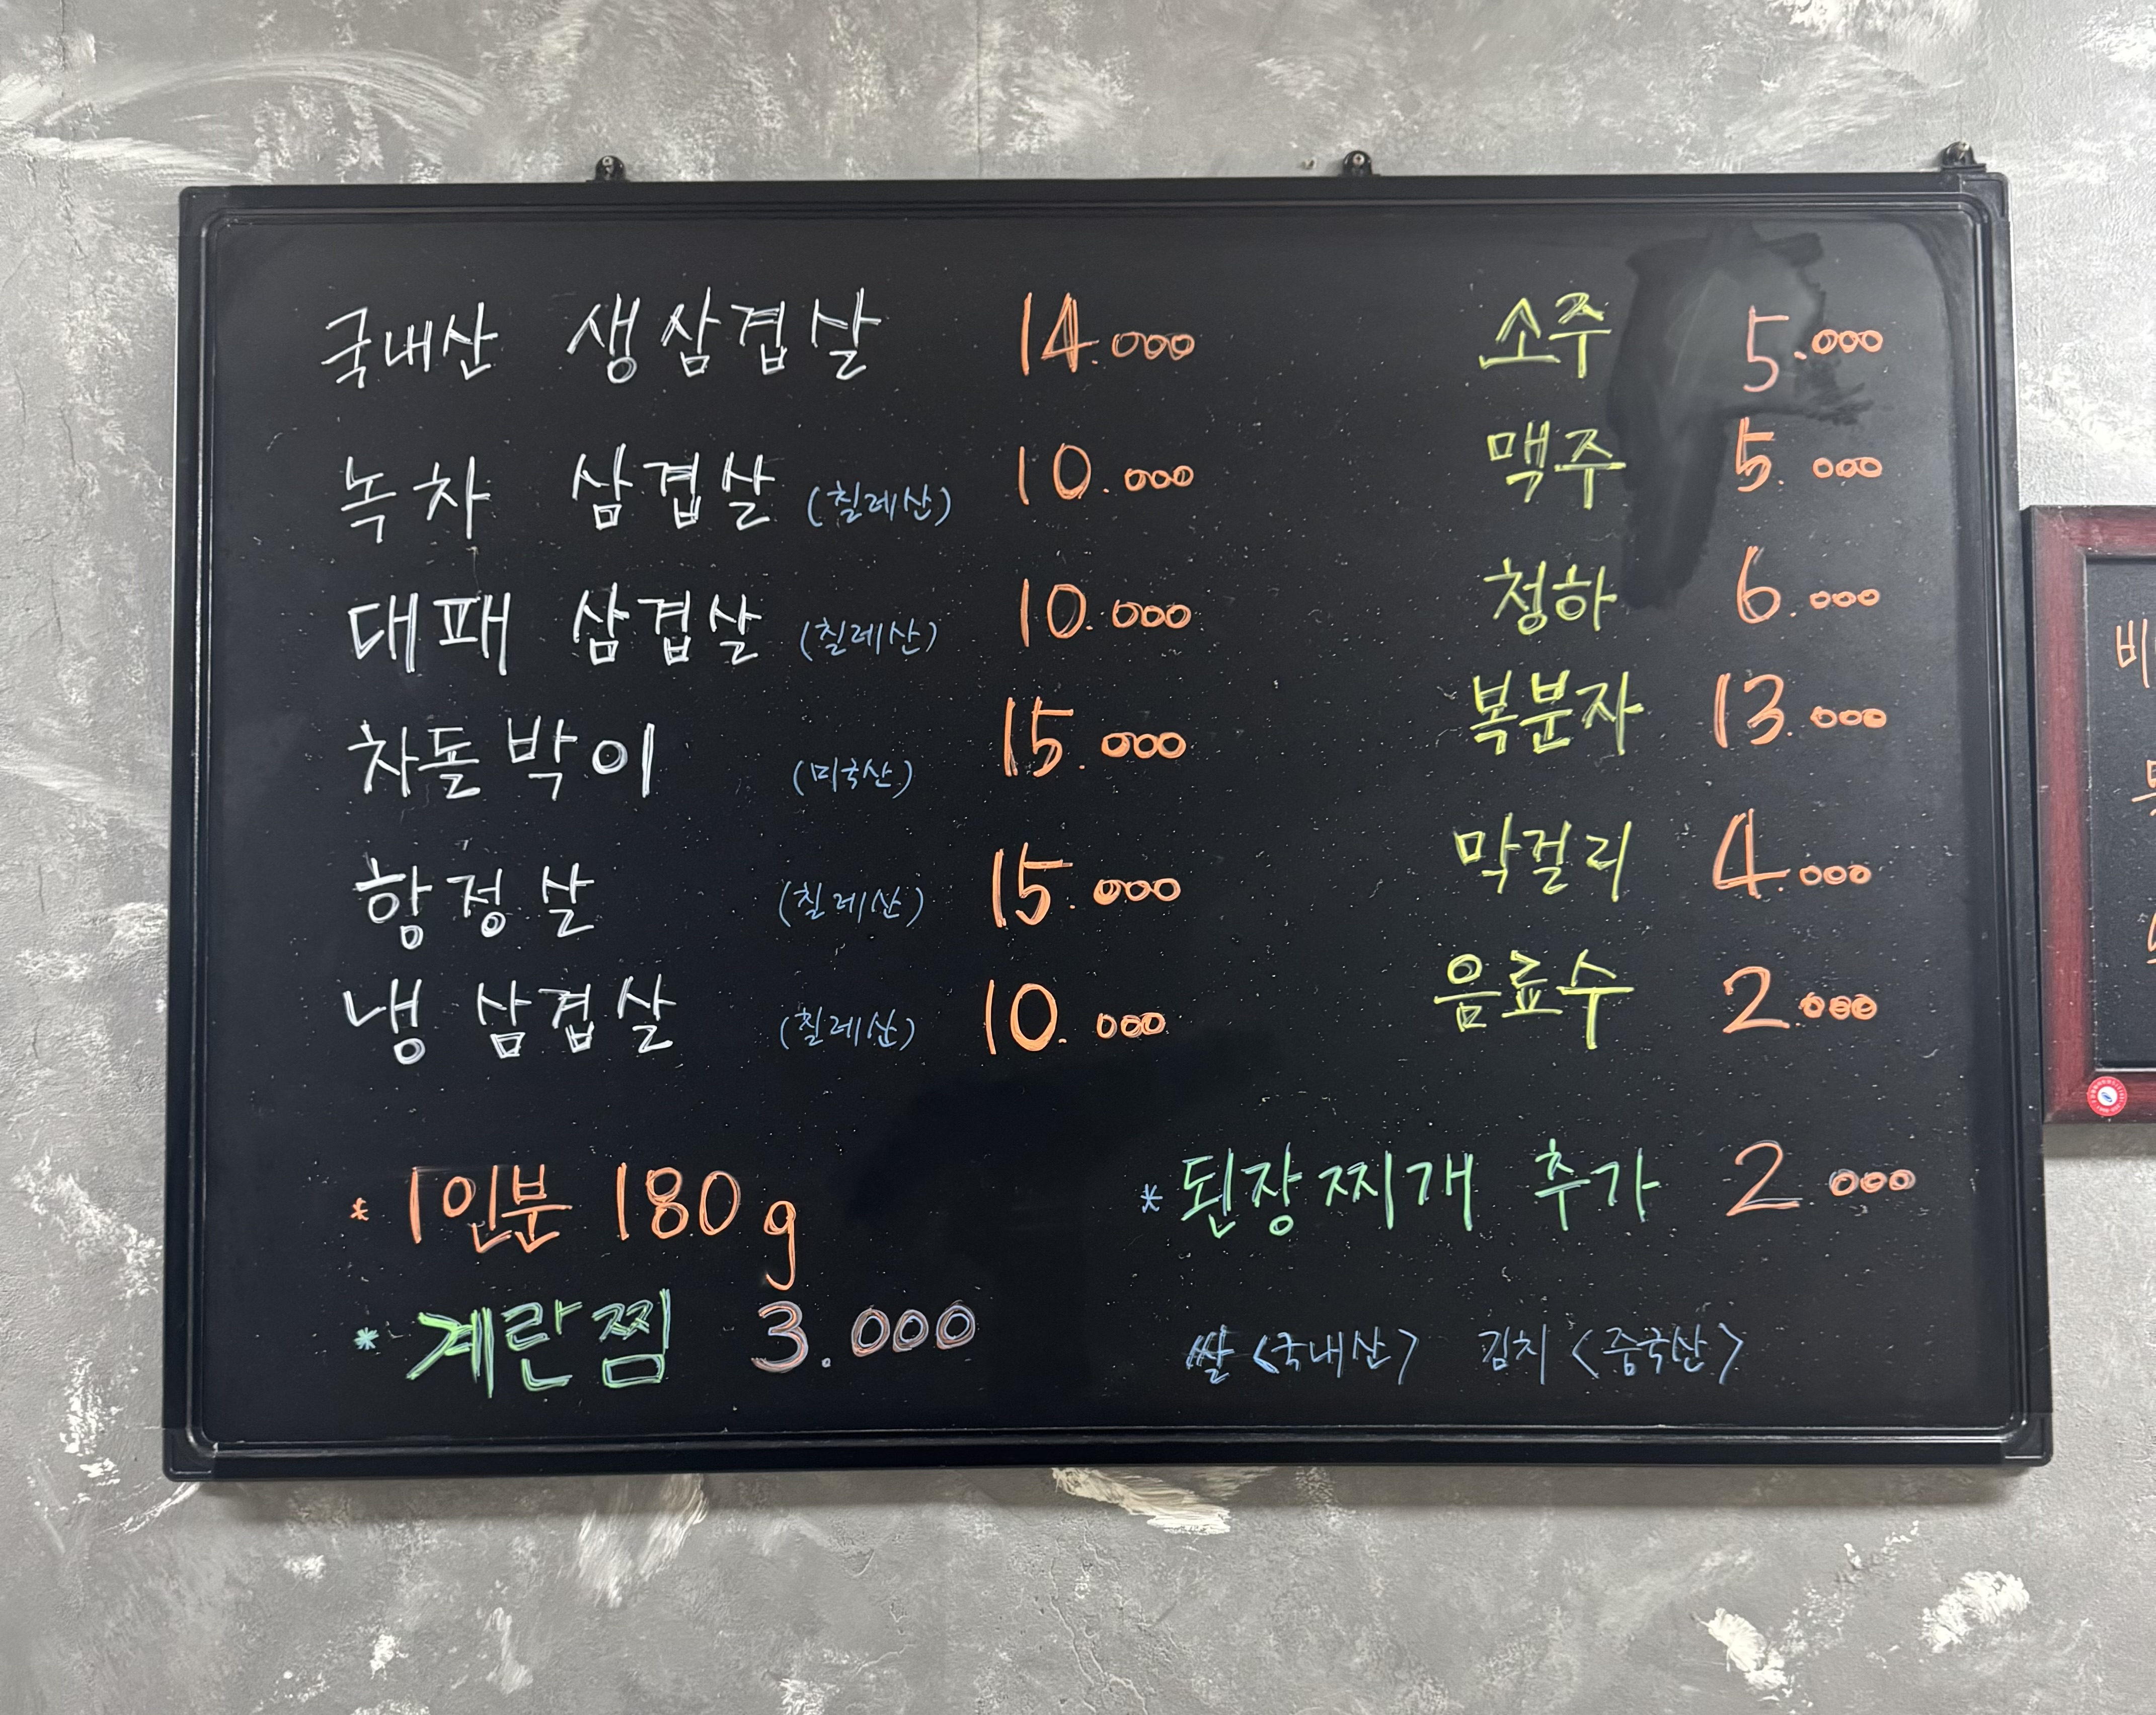 국내산 생삼겹살 14.000
녹차 삼겹살 (칠레산) 10.000
대패 삼겹살 (칠레산) 10.000
차돌박이 (미국산) 15.000
항정살 (칠레산) 15.000
냉삼겹살 (칠레산) 10.000
* 1인분 180g
* 계란찜 3.000
소주 5.000
맥주 5.000
청하 6.000
복분자 13.000
막걸리 4.000
음료수 2.000
* 된장찌개 추가 2 000
쌀 <국내산> 김치 <중국산>